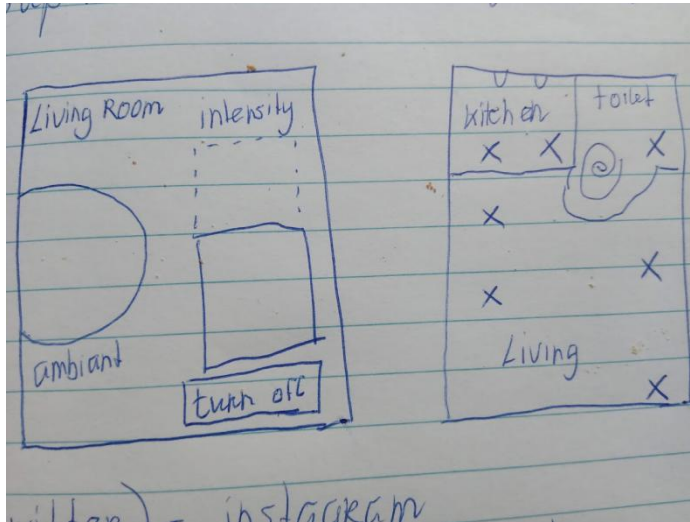 Living Room
intensity
ambiant
turn off
kitchen
toilet
X X X
X
X
X
Living
X
instagram